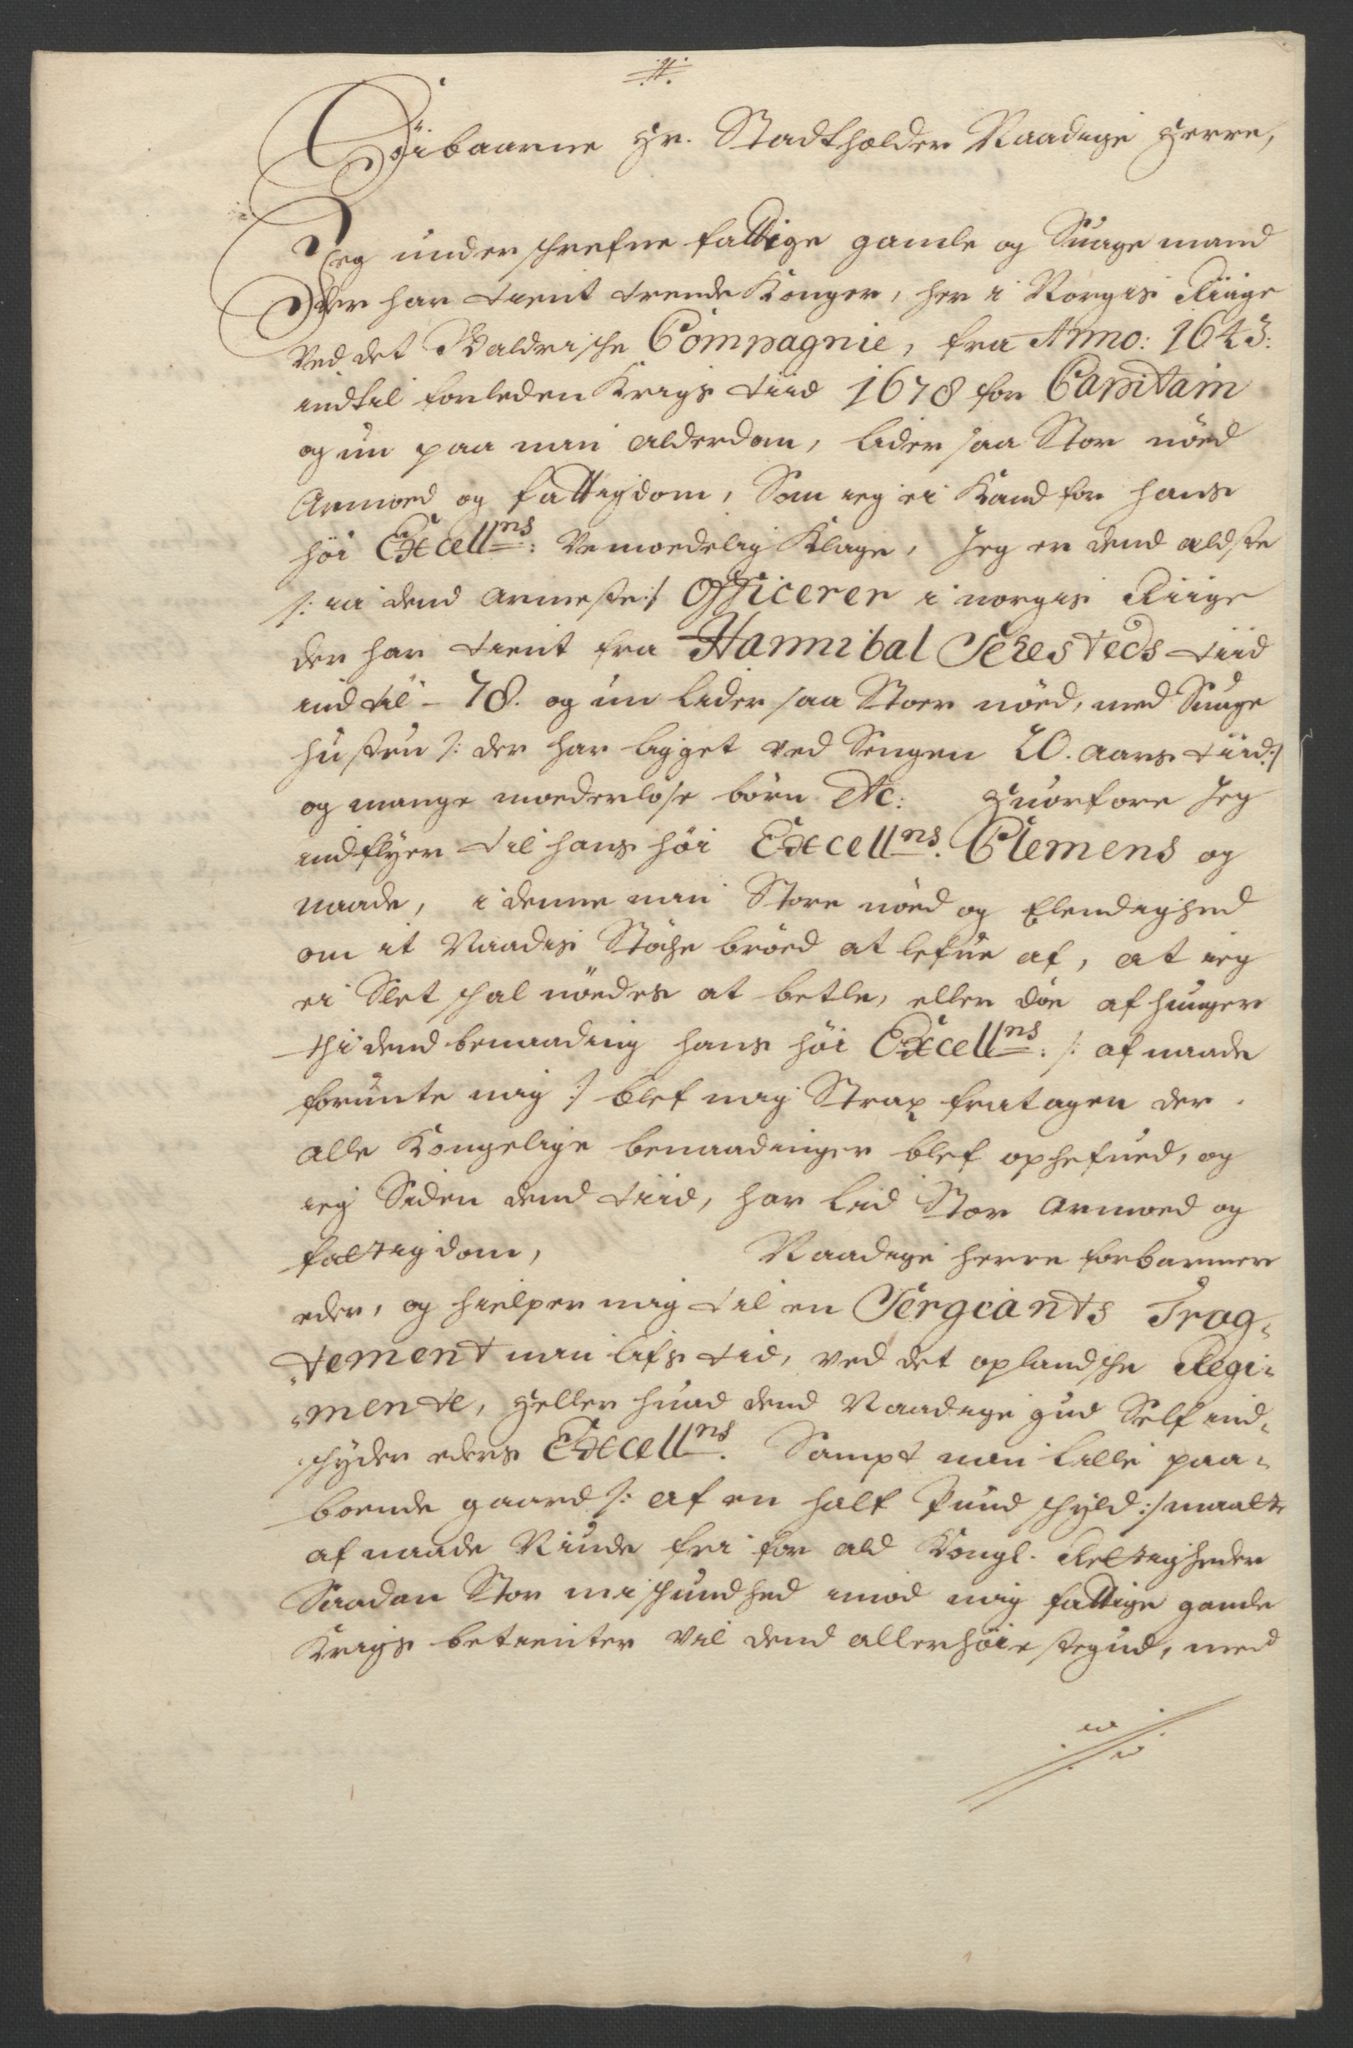 Høibaarne Hr. Stadtholder Naadige Herre,
Jeg underschrefne fattige gamle og Suage mand
Der har tient trende Konger, her i Norgis Riige
Ved det Waldrische Compagnie, fra Anno: 1643:
indtil forleden Krigs tiid 1678 for Capitain
og nu paa min alderdom, lider saa Stor nöed
Armoed og fattigdom, Som ieg ei Kand for hans
höi Excell<sup>ns</sup>: Vemoedelig Klage, Jeg er dend aldste
/: ia dend armeste :/ Officerer i norgis Riige
der har tient fra Hannibal Sehesteds tiid
ind til – 78. og nu lider saa Stoer nöed, med Suage
hustru /: der har ligget ved Sengen 20. aars tiid :/
og mange moederløse börn etc: Huorfore Jeg
indflyer til hans höi Excell<sup>ns</sup>. Clemens og
naade, i denne min Store nöed og Elendighed
om it Naadis Støche bröed at lefue af, at ieg
ei Slet schal nöedes at betle, eller döe af hunger
thi dend benaading hans höi Excell<sup>ns</sup>: /: af naade
forunte mig :/ blef mig Strax fratagen der
alle Kongelige benaadinger blef ophefued, og
ieg Siden dend tiid, har lid Stor Armoed og
fattigdom, Naadige herre forbarmer
eder, og hielper mig til en Sergiants Trag-
tement min lifs tid, ved det oplandsche Regi-
mente, Heller huad dend Naadige gud Self ind-
schyder eders Excell<sup>ns</sup>. Sampt min lille paa-
boende gaard /: af en half Pund schyld :/ maatte
af naade Niude fri for ald Kongl. Rettigheder
Saadan Stor mischundhed imod mig fattige gamle
Krigs betienter vil dend allerhöieste gud, med